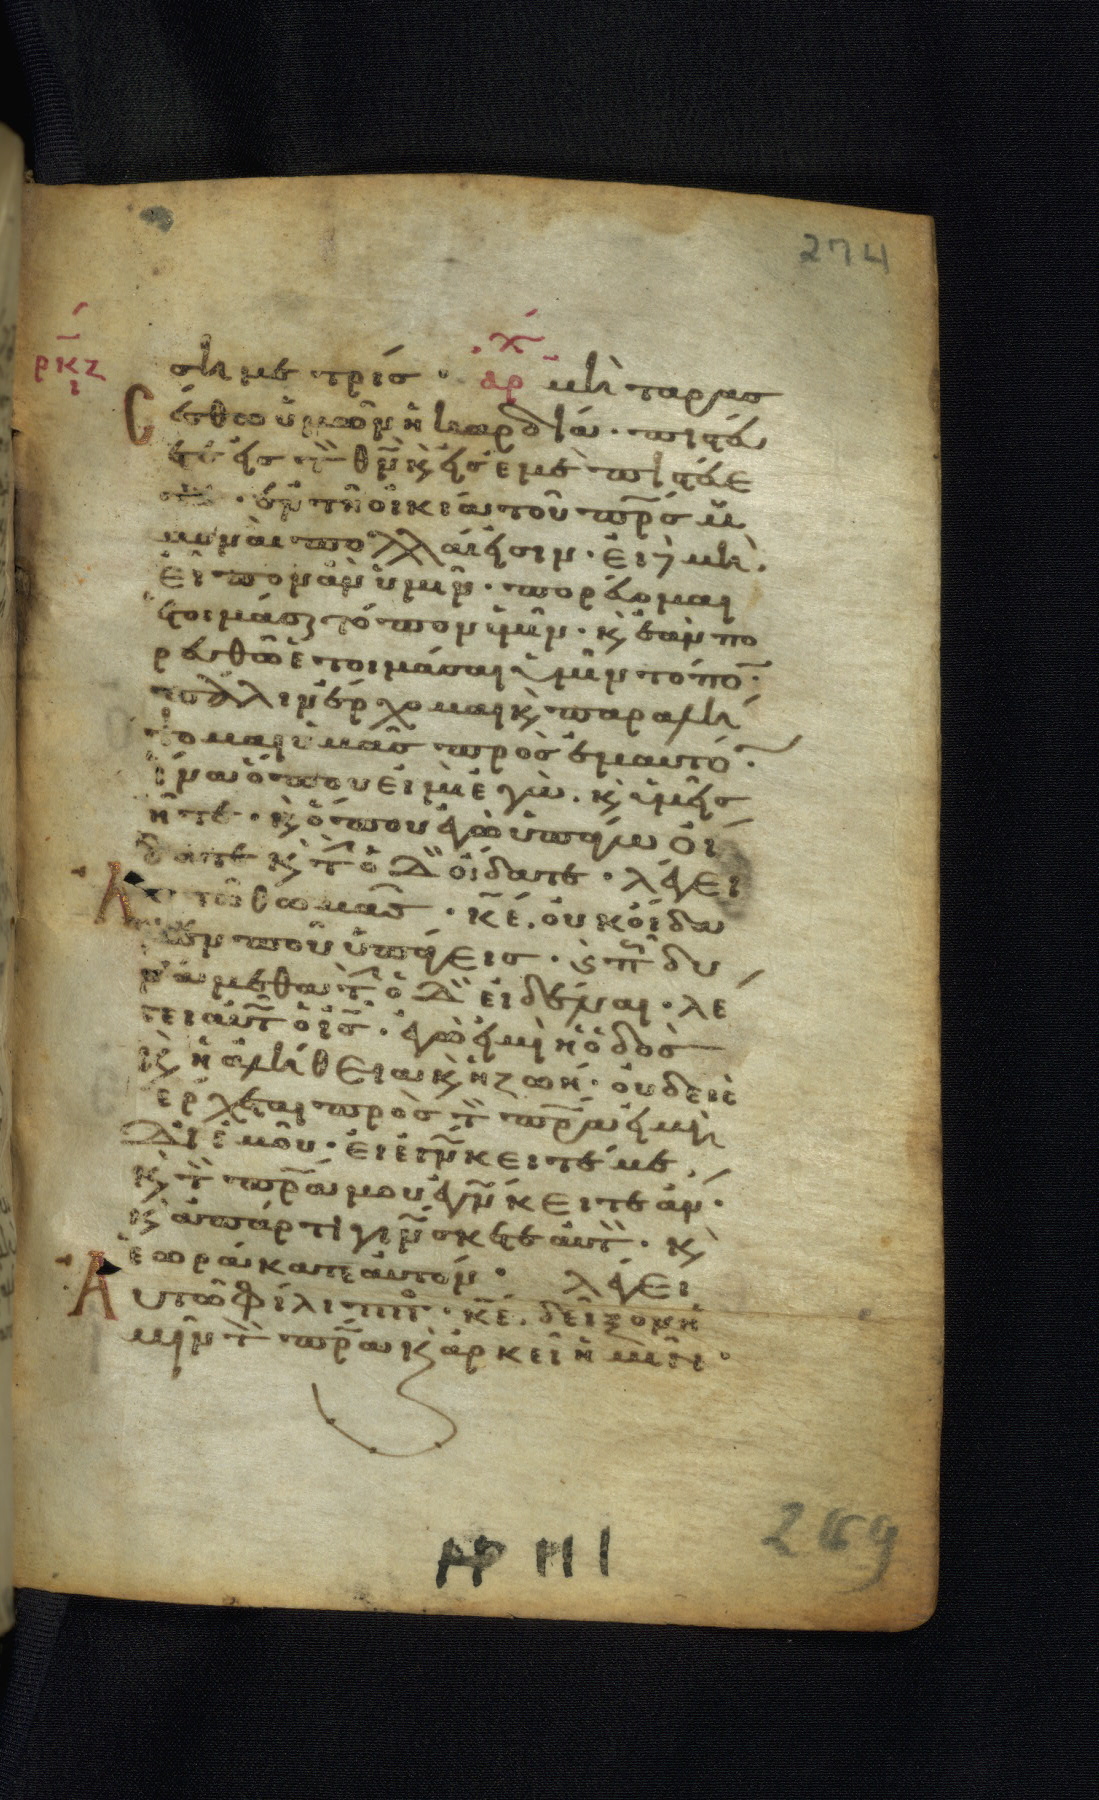 274
ρκζ
ι
ση με τρίσ · αρχ μὴ ταρασ
σέσθω ὑμῶν ἡ καρδία · πιστεύ
ετε εἰς τὸν θν κ εἰς ἐμὲ πιστεύε
τε · ἐν τῆ οἰκία τοῦ πρσ μου
μοναὶ πολλαί εἰσιν · εἰ δὲ μὴ.
εἶπον ἂν ὑμῖν · πορεύομαι
ἑτοιμάσαι τόπον ὑμῖν · κ ἐὰν πο
ρευθῶ ἑτοιμάσαι ὑμῖν τόπον ·
πάλιν ἔρχομαι κ παραλή
ψομαι ὑμᾶσ πρὸσ ἐμαυτόν ·
ἵνα ὅπου εἰμὶ ἐγὼ. κ ὑμεῖσ
ἦτε · κ ὅπου ἐγὼ ὑπάγω οἴ
δατε κ τὴν ὁδὸν οἴδατε · λέγει
Αυτῶ θωμᾶσ · κε. οὐκ οἴδα
μεν ποῦ ὑπάγεισ · κ πῶσ δυ
νάμεθα τὴν ὁδὸν εἰδέναι · λέ
γει αὐτῶ ὁ ισ · ἐγώ εἰμι ἡ ὁδὸσ
κ ἡ ἀλήθεια κ ἡ ζωή · οὐδεὶσ
ἔρχεται πρὸσ τὸν πρα εἰ μὴ
δι ἐμοῦ · εἰ ἐγνώκειτέ με.
κ τὸν πρα μου ἐγνώκειτε ἄν ·
κ ἀπάρτι γινώσκετε αὐτὸν · κ
ἑωράκατε αὐτόν · λέγει
Αυτῶ φίλιπποσ · κε. δεῖξον ἡ
μῖν τὸν πρα κ ἀρκεῖ ἡμῖν ·
269